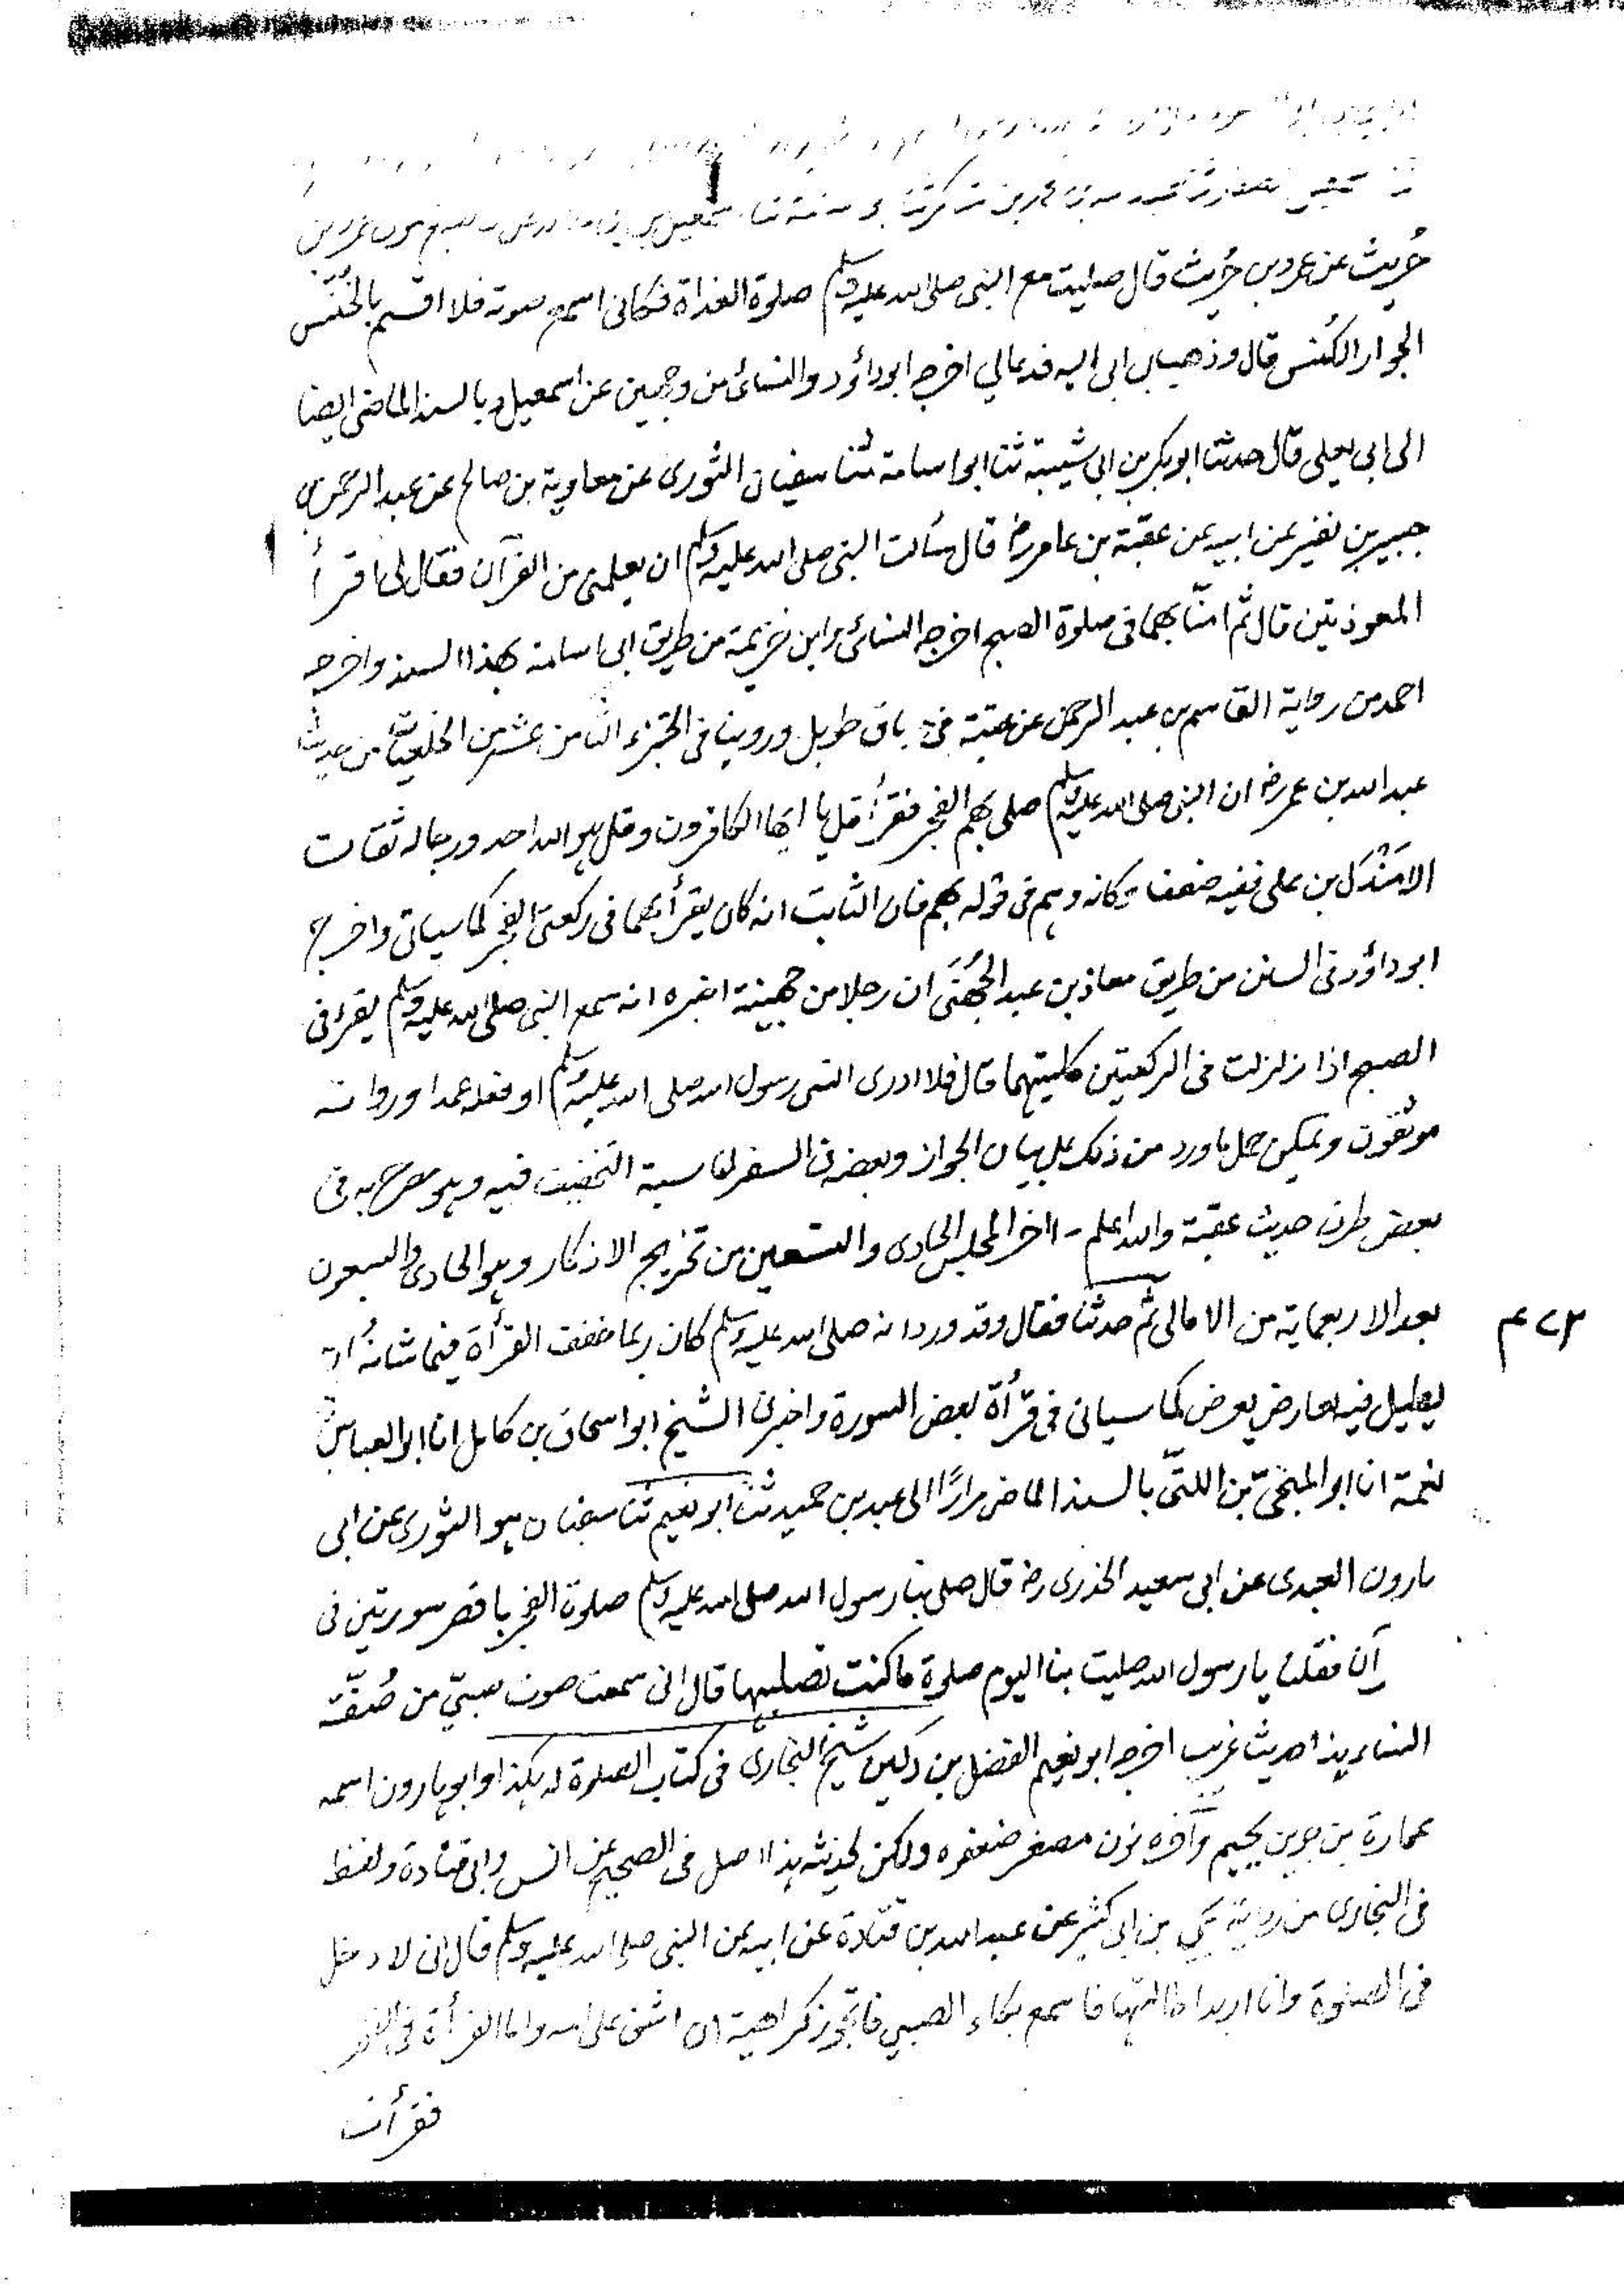 حُريث عن عمرو بن حُريث قال صليت مع النبي صلى الله عليه وسلم صلوة الغداة فكاني اسمع صوته فلا اقسم بالخنس
الجوار الكنس قال وذهب بي ابي اليه فدعا لي اخرجه ابو داؤد والنسائي من وجهين عن اسمعيل وبالسند الماضي ايضا
الى ابي يعلى قال حدثنا ابو بكر بن ابي شيبة ثنا ابو اسامة ثنا سفيان الثوري عن معاوية بن صالح عن عبد الرحمن بن
جبير بن نفير عن ابيه عن عقبة بن عامر رض قال سألت النبي صلى الله عليه وسلم ان يعلمني من القرآن فقال لي اقرأ
المعوذتين قال ثم امنّا بهما في صلوة الصبح اخرجه النسائي وابن خزيمة من طريق ابي اسامة بهذا السند واخرجه
احمد من رواية القاسم بن عبد الرحمن عن عقبة في باق طويل وروينا في الجزء الثامن عشر من الخلعيات من حديث
عبد الله بن عمر رض ان النبي صلى الله عليه وسلم صلى بهم الفجر فقرأ قل يا ايها الكافرون وقل هو الله احد ورجاله ثقات
الا مندل بن علي ففيه ضعف وكانه وهم في قوله بهم فان الثابت انه كان يقرأ بهما في ركعتي الفجر كما سياتي واخرج
ابو داؤد في السنن من طريق معاذ بن عبد الجُهَني ان رجلا من جهينة اخبره انه سمع النبي صلى الله عليه وسلم يقرأ في
الصبح اذا زلزلت في الركعتين كليتهما قال فلا ادرى انسي رسول الله صلى الله عليه وسلم او فعله عمدا ورواته
موثقون ويمكن حمل ما ورد من ذلك على بيان الجواز وبعضه في السفر لمناسبة التخفيف فيه وهو مصرح به في
بعض طرق حديث عقبة والله اعلم - اخر المجلس الحادي والتسعين من تخريج الاذكار وهو الحادي والسبعون
بعد الاربعماية من الامالي ثم حدثنا فقال وقد ورد انه صلى الله عليه وسلم كان ربما خفف القرأة فيما شانه ان
يطيل فيه لعارض يعرض كما سياتي في قرأة بعض السورة واخبرني الشيخ ابو اسحاق بن كامل انا ابو العباس بن
نعمة انا ابو المنجّى بن اللتّي بالسند الماضي مرارًا الى عبد بن حميد ثنا ابو نعيم ثنا سفيان هو الثوري عن ابي
هارون العبدي عن ابي سعيد الخدري رض قال صلى بنا رسول الله صلى الله عليه وسلم صلوة الفجر باقصر سورتين في
آن فقلنا يا رسول الله صليت بنا اليوم صلوة ما كنت تصليها قال اني سمعت صوت صبيّ من صُفّة
النساء هذا حديث غريب اخرجه ابو نعيم الفضل بن دكين شيخ البخاري في كتاب الصلوة له هكذا وابو هارون اسمه
عمارة بن جوين بجيم وآخره نون مصغر ضعفوه ولكن لحديثه هذا اصل في الصحيح عن انس وابي قتادة ولفظ
في البخاري من رواية يحيى بن ابي كثير عن عبد الله بن قتادة عن ابيه عن النبي صلى الله عليه وسلم قال اني لا دخل
في الصلوة وانا اريد اطالتها فاسمع بكاء الصبي فاتجوز كراهية ان اشق على امه واما القرأة في
فقرأت